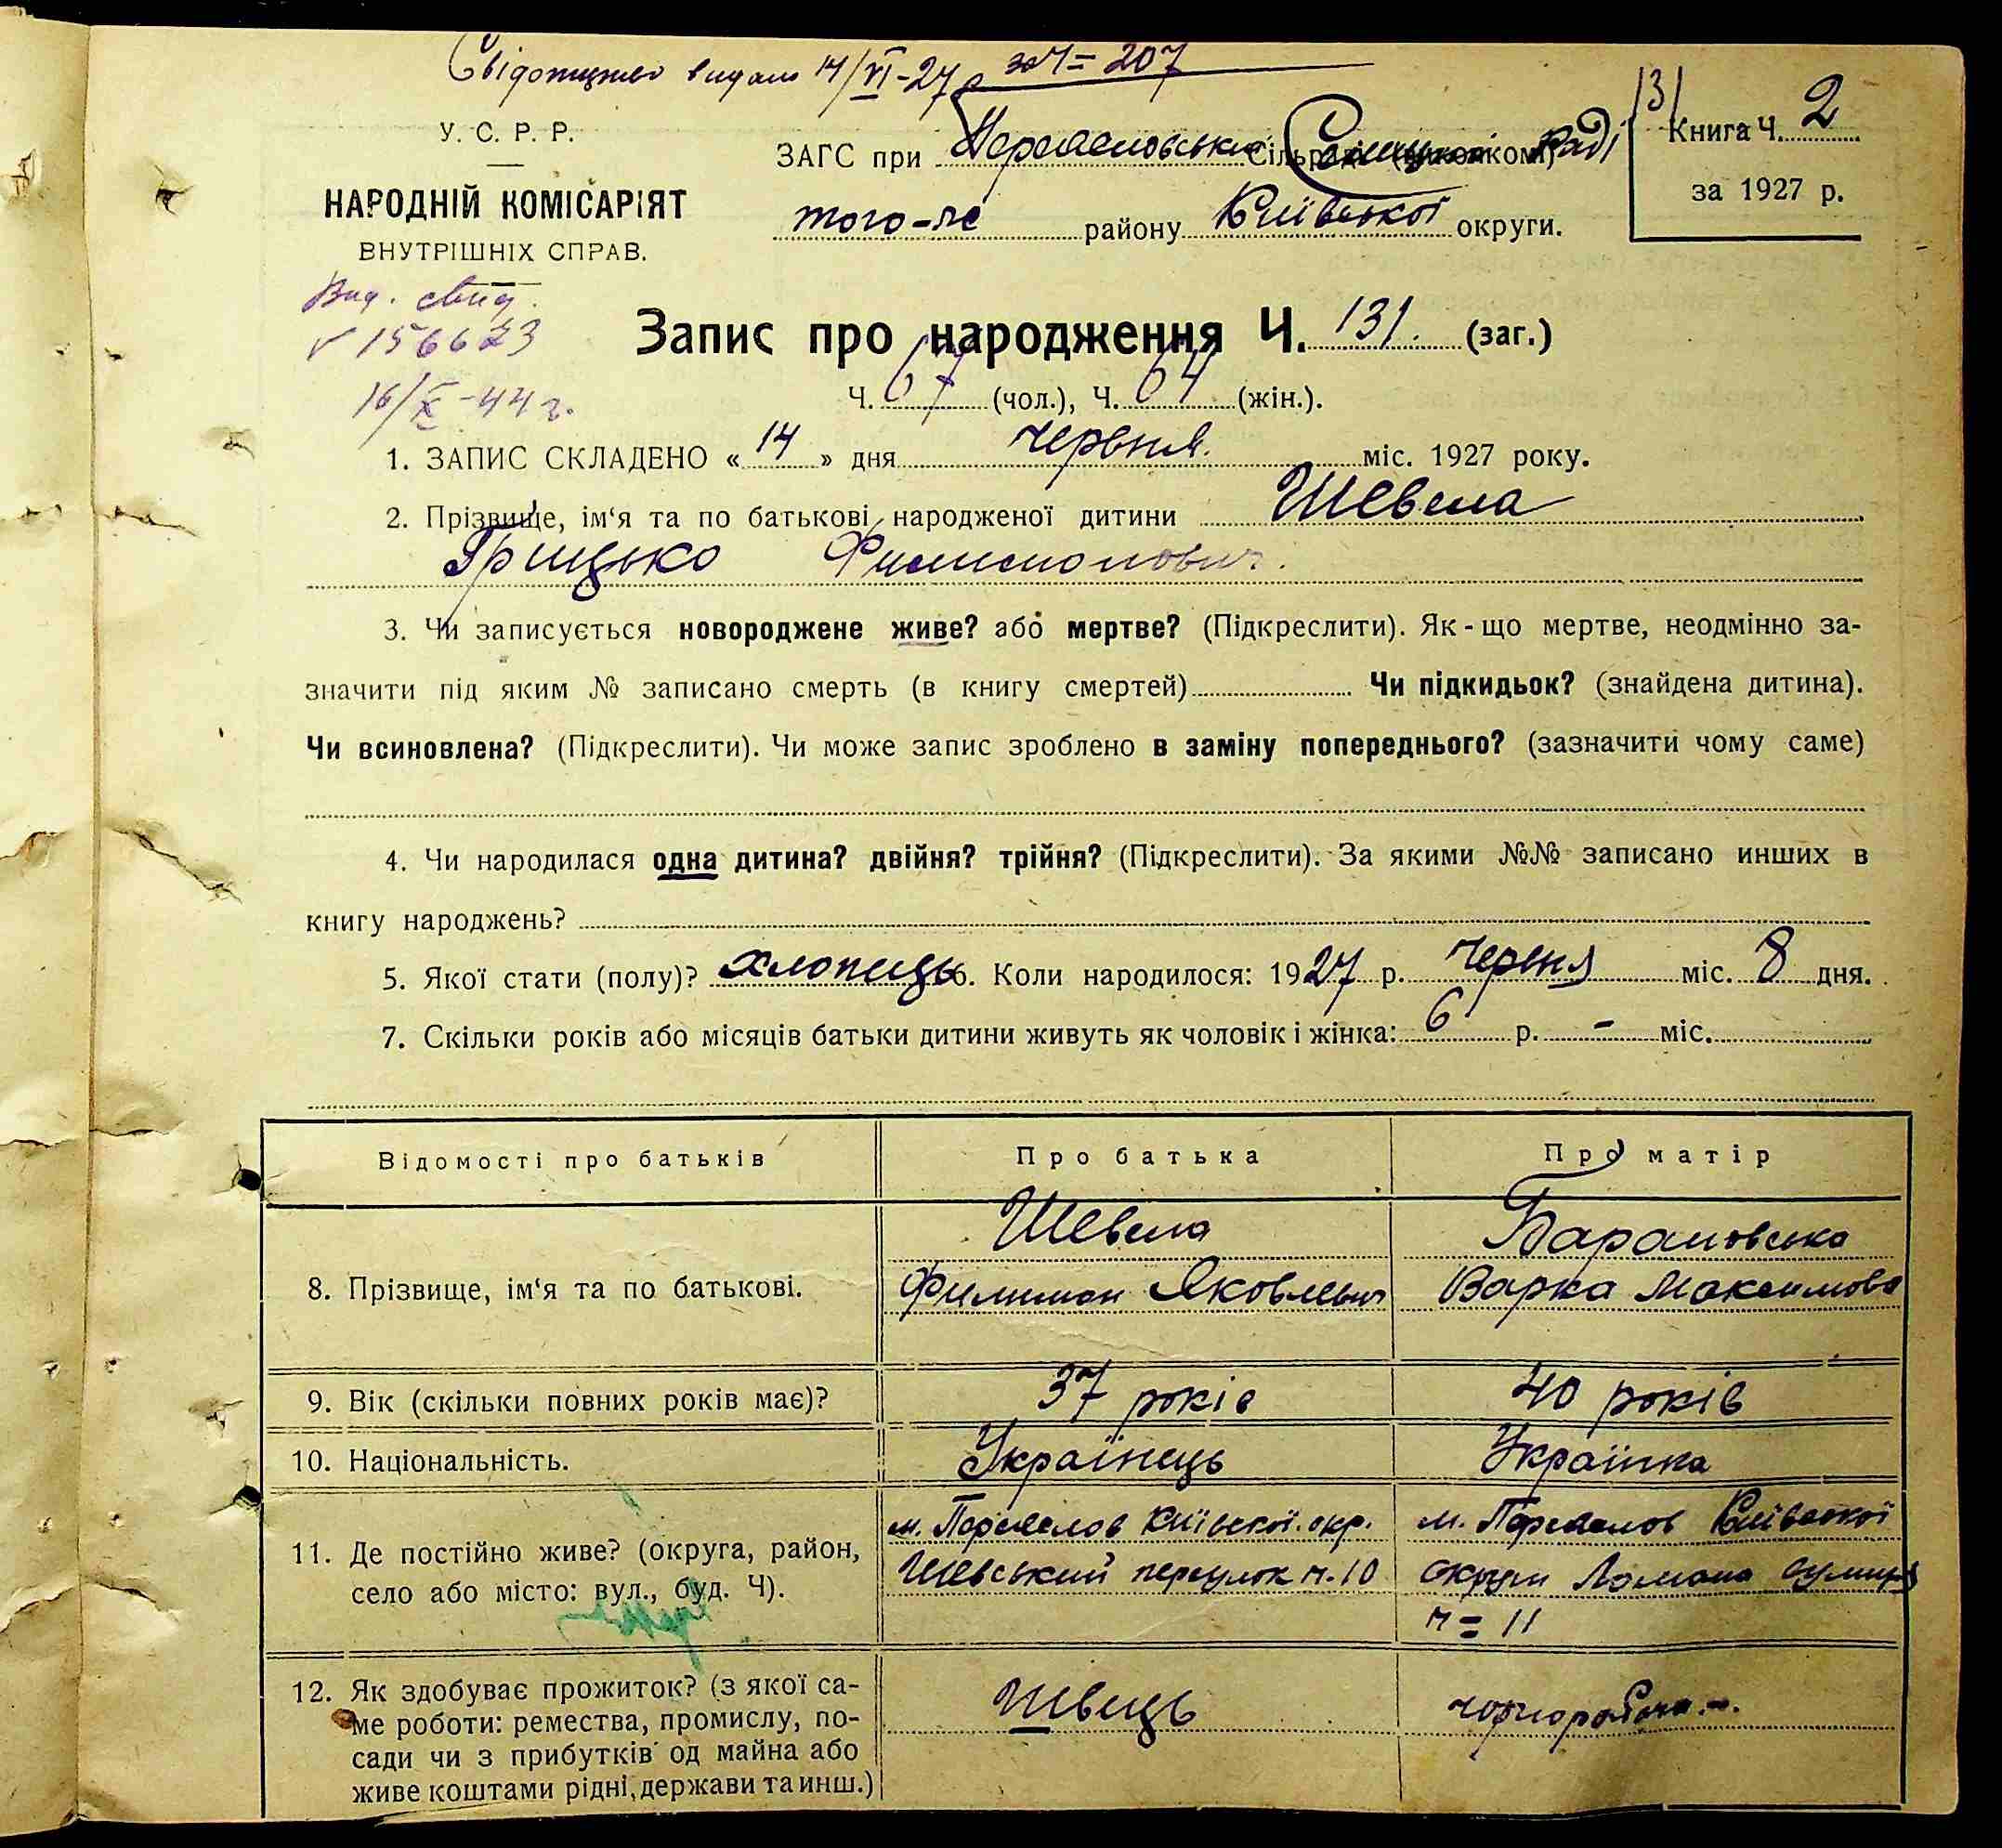 Свідоцтво видано 14/VI-27 р за Ч= 207
131
У. С. Р. Р.
НАРОДНІЙ КОМІСАРІЯТ
ВНУТРІШНІХ СПРАВ.
ЗАГС при Сільраді (виконкомі) Раді
того-ж району Київської округи.
Книга Ч. 2
за 1927 р.
Вид. свид.
156623
16/X-44 г.
Запис про народження Ч. 131. (заг.)
Ч. 67 (чол.), Ч. 64 (жін.).
1. ЗАПИС СКЛАДЕНО « 14 » дня червня міс. 1927 року.
2. Прізвище, ім‘я та по батькові народженої дитини Шевела
Грицько Филимонович.
3. Чи записується новороджене живе? або мертве? (Підкреслити). Як-що мертве, неодмінно за-
значити під яким № записано смерть (в книгу смертей) Чи підкидьок? (знайдена дитина).
Чи всиновлена? (Підкреслити). Чи може запис зроблено в заміну попереднього? (зазначити чому саме)
4. Чи народилася одна дитина? двійня? трійня? (Підкреслити). За якими №№ записано инших в
книгу народжень?
5. Якої стати (полу)? хлопець 6. Коли народилося: 1927 р. червня міс. 8 дня.
7. Скільки років або місяців батьки дитини живуть як чоловік і жінка: 6 р. - міс.
Відомості про батьків Про батька Про матір
8. Прізвище, ім‘я та по батькові.
Шевела
Филимон Яковлевич
Барановська
Варка Максимова
9. Вік (скільки повних років має)? 37 років 40 років
10. Національність. Українець Українка
11. Де постійно живе? (округа, район,
село або місто: вул., буд. Ч).
м. Переяслов Київської окр.
Шевський переулок ч. 10
м. Переяслов Київської
округи улиця
ч= 11
12. Як здобуває прожиток? (з якої са-
ме роботи: ремества, промислу, по-
сади чи з прибутків од майна або
живе коштами рідні, держави та инш.)
Швець
чорноробоча